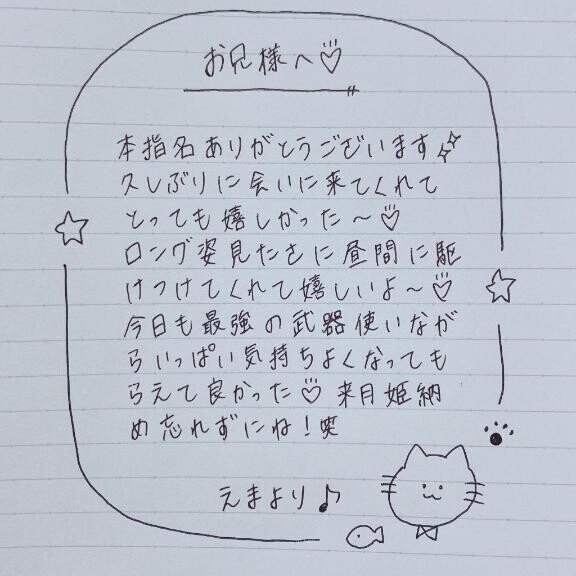 お兄様へ♡
本指名ありがとうございます✨
久しぶりに会いに来てくれて
とっても嬉しかった～♡
ロング姿見たさに昼間に駆
けつけてくれて嬉しいよ～♡
今日も最強の武器使いなが
らいっぱい気持ちよくなっても
らえて良かった♡ 来月姫納
め忘れずにね！笑
えまより♪